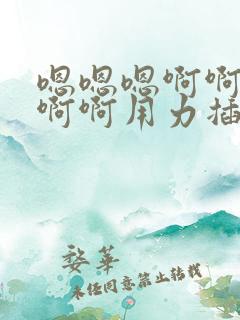 嗯嗯嗯啊啊
啊啊用力插
婺华
未经同意禁止转载